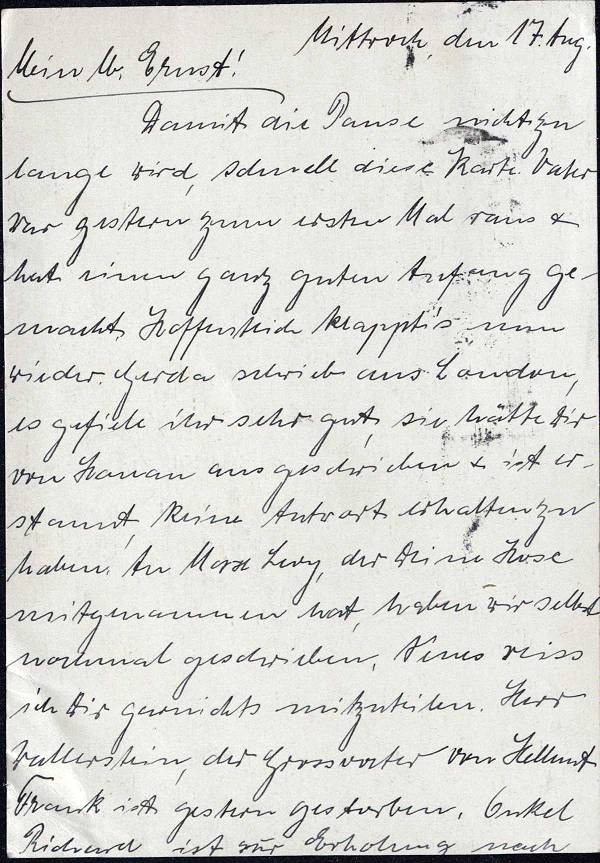 Mittwoch, den 17. Aug.
Mein lb. Ernst!
Damit die Pause nicht zu
lange wird, schnell diese Karte. Vater
war gestern zum ersten Mal raus &
hat einen ganz guten Anfang ge-
macht. Hoffentlich klappt's nun
wieder. Gerda schrieb aus London,
es gefiele ihr sehr gut, sie hätte Dir
von Hanau aus geschrieben & ist er-
staunt, keine Antwort erhalten zu
haben. An Max Levy, der Deine Hose
mitgenommen hat, haben wir selbst
nochmal geschrieben. Neues weiss
ich Dir garnichts mitzuteilen. Herr
Wallerstein, der Grossvater von Hellmut
Frank ist gestern gestorben. Onkel
Richard ist zur Erholung nach